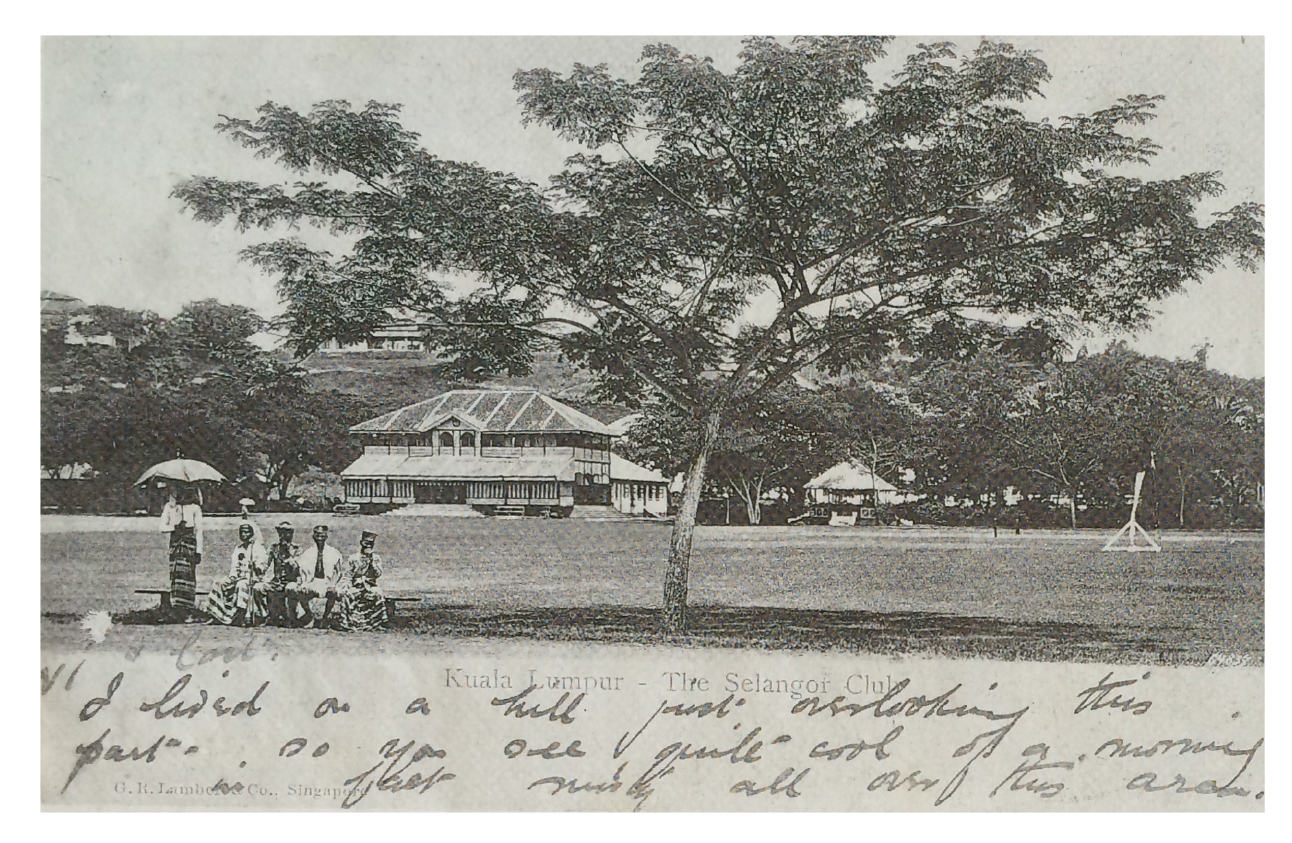 Kuala Lumpur - The Selangor Club
I lived on a hill just overlooking this
part - so you see quite cool of a morning
in fact misty all over this area.
G. R. Lambert & Co., Singapore